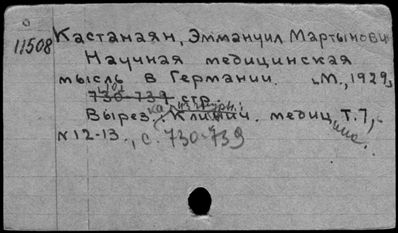 11508
Кастанаян, Эммануил Мартынович
Научная медицинская
мысль в Германии. М., 1929,
730-739 стр.
Вырез. из журн.: Клинич. медицина. Т. 7,
N 12-13., с. 730-739